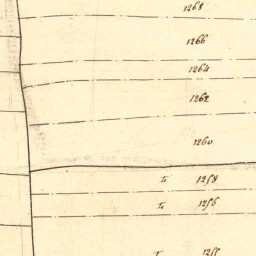 1268
1266
1264
1262
1260
1258
1256
1255